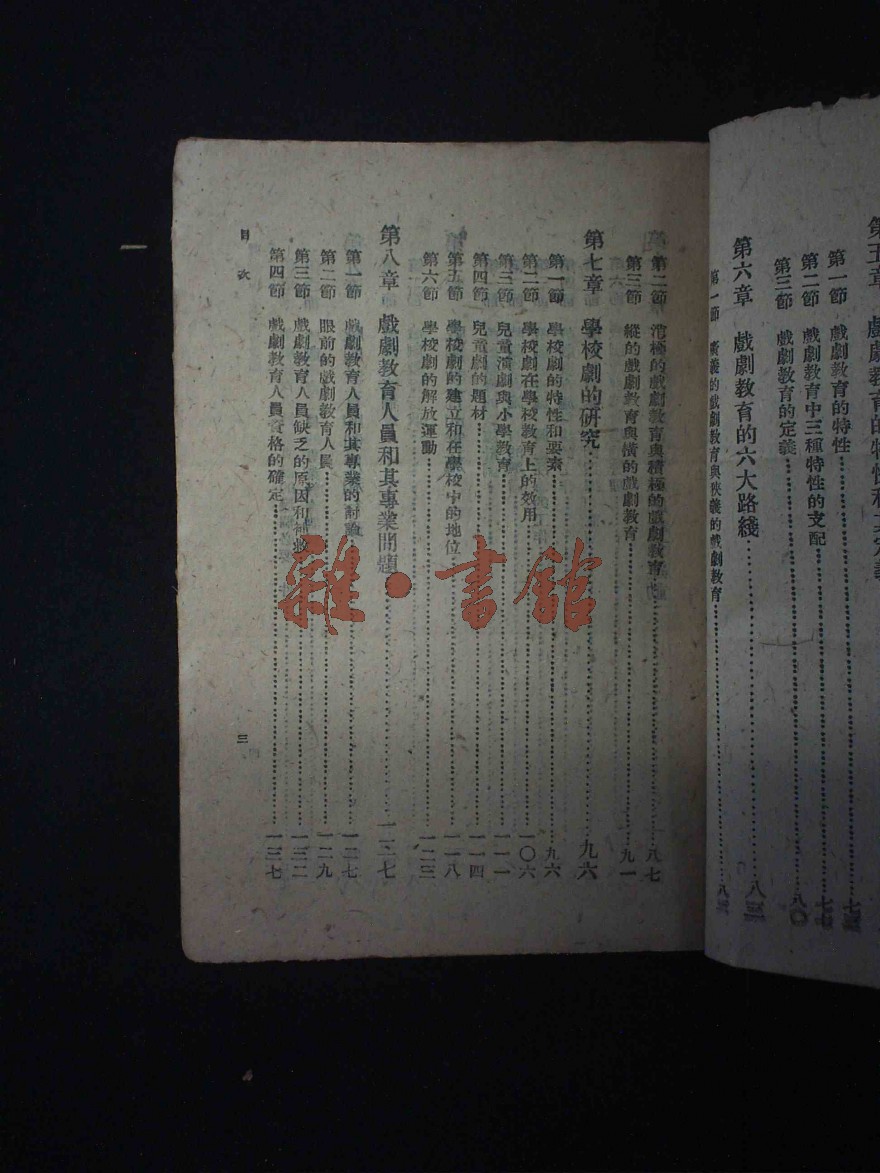 第五章 戲劇教育的特性和
第一節 戲劇教育的特性……七
第二節 戲劇教育中三種特性的支配……七
第三節 戲劇教育的定義……八〇
第六章 戲劇教育的六大路綫……八三
第一節 廣義的戲劇教育與狹義的戲劇教育……八三
第二節 消極的戲劇教育與積極的戲劇教育……八七
第三節 縱的戲劇教育與橫的戲劇教育……九一
第七章 學校劇的研究……九六
第一節 學校劇的特性和要素……九六
第二節 學校劇在學校教育上的效用……一〇六
第三節 兒童演劇與小學教育……一一一
第四節 兒童劇的題材……一一四
第五節 學校劇的建立和在學校中的地位……一一八
第六節 學校劇的解放運動……一二三
第八章 戲劇教育人員和其專業問題……一二七
第一節 戲劇教育人員和其專業的討論……一二七
第二節 眼前的戲劇教育人員……一二九
第三節 戲劇教育人員缺乏的原因和補救……一三二
第四節 戲劇教育人員資格的確定……一三七
目次
三
雜·書館